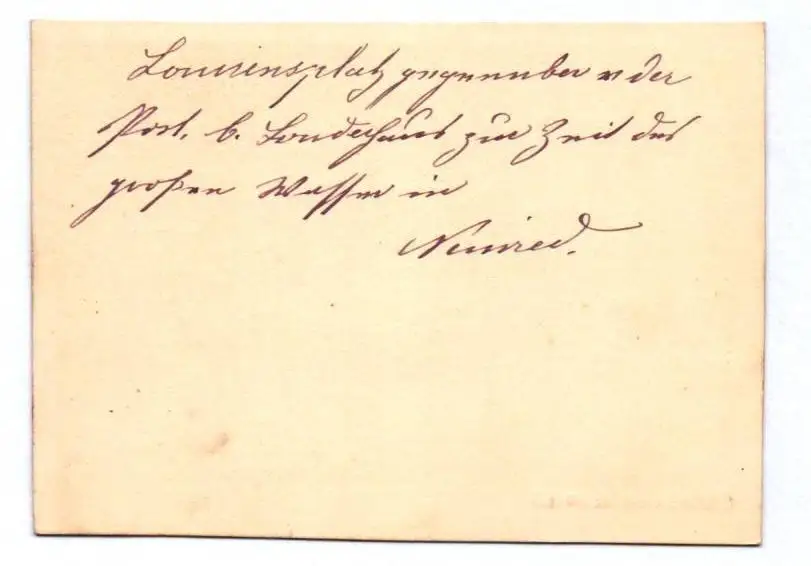 Louisensplatz gegenüber v der
Post, b. Landeshaus zur Zeit des
großen Wassers in
Neuwied.